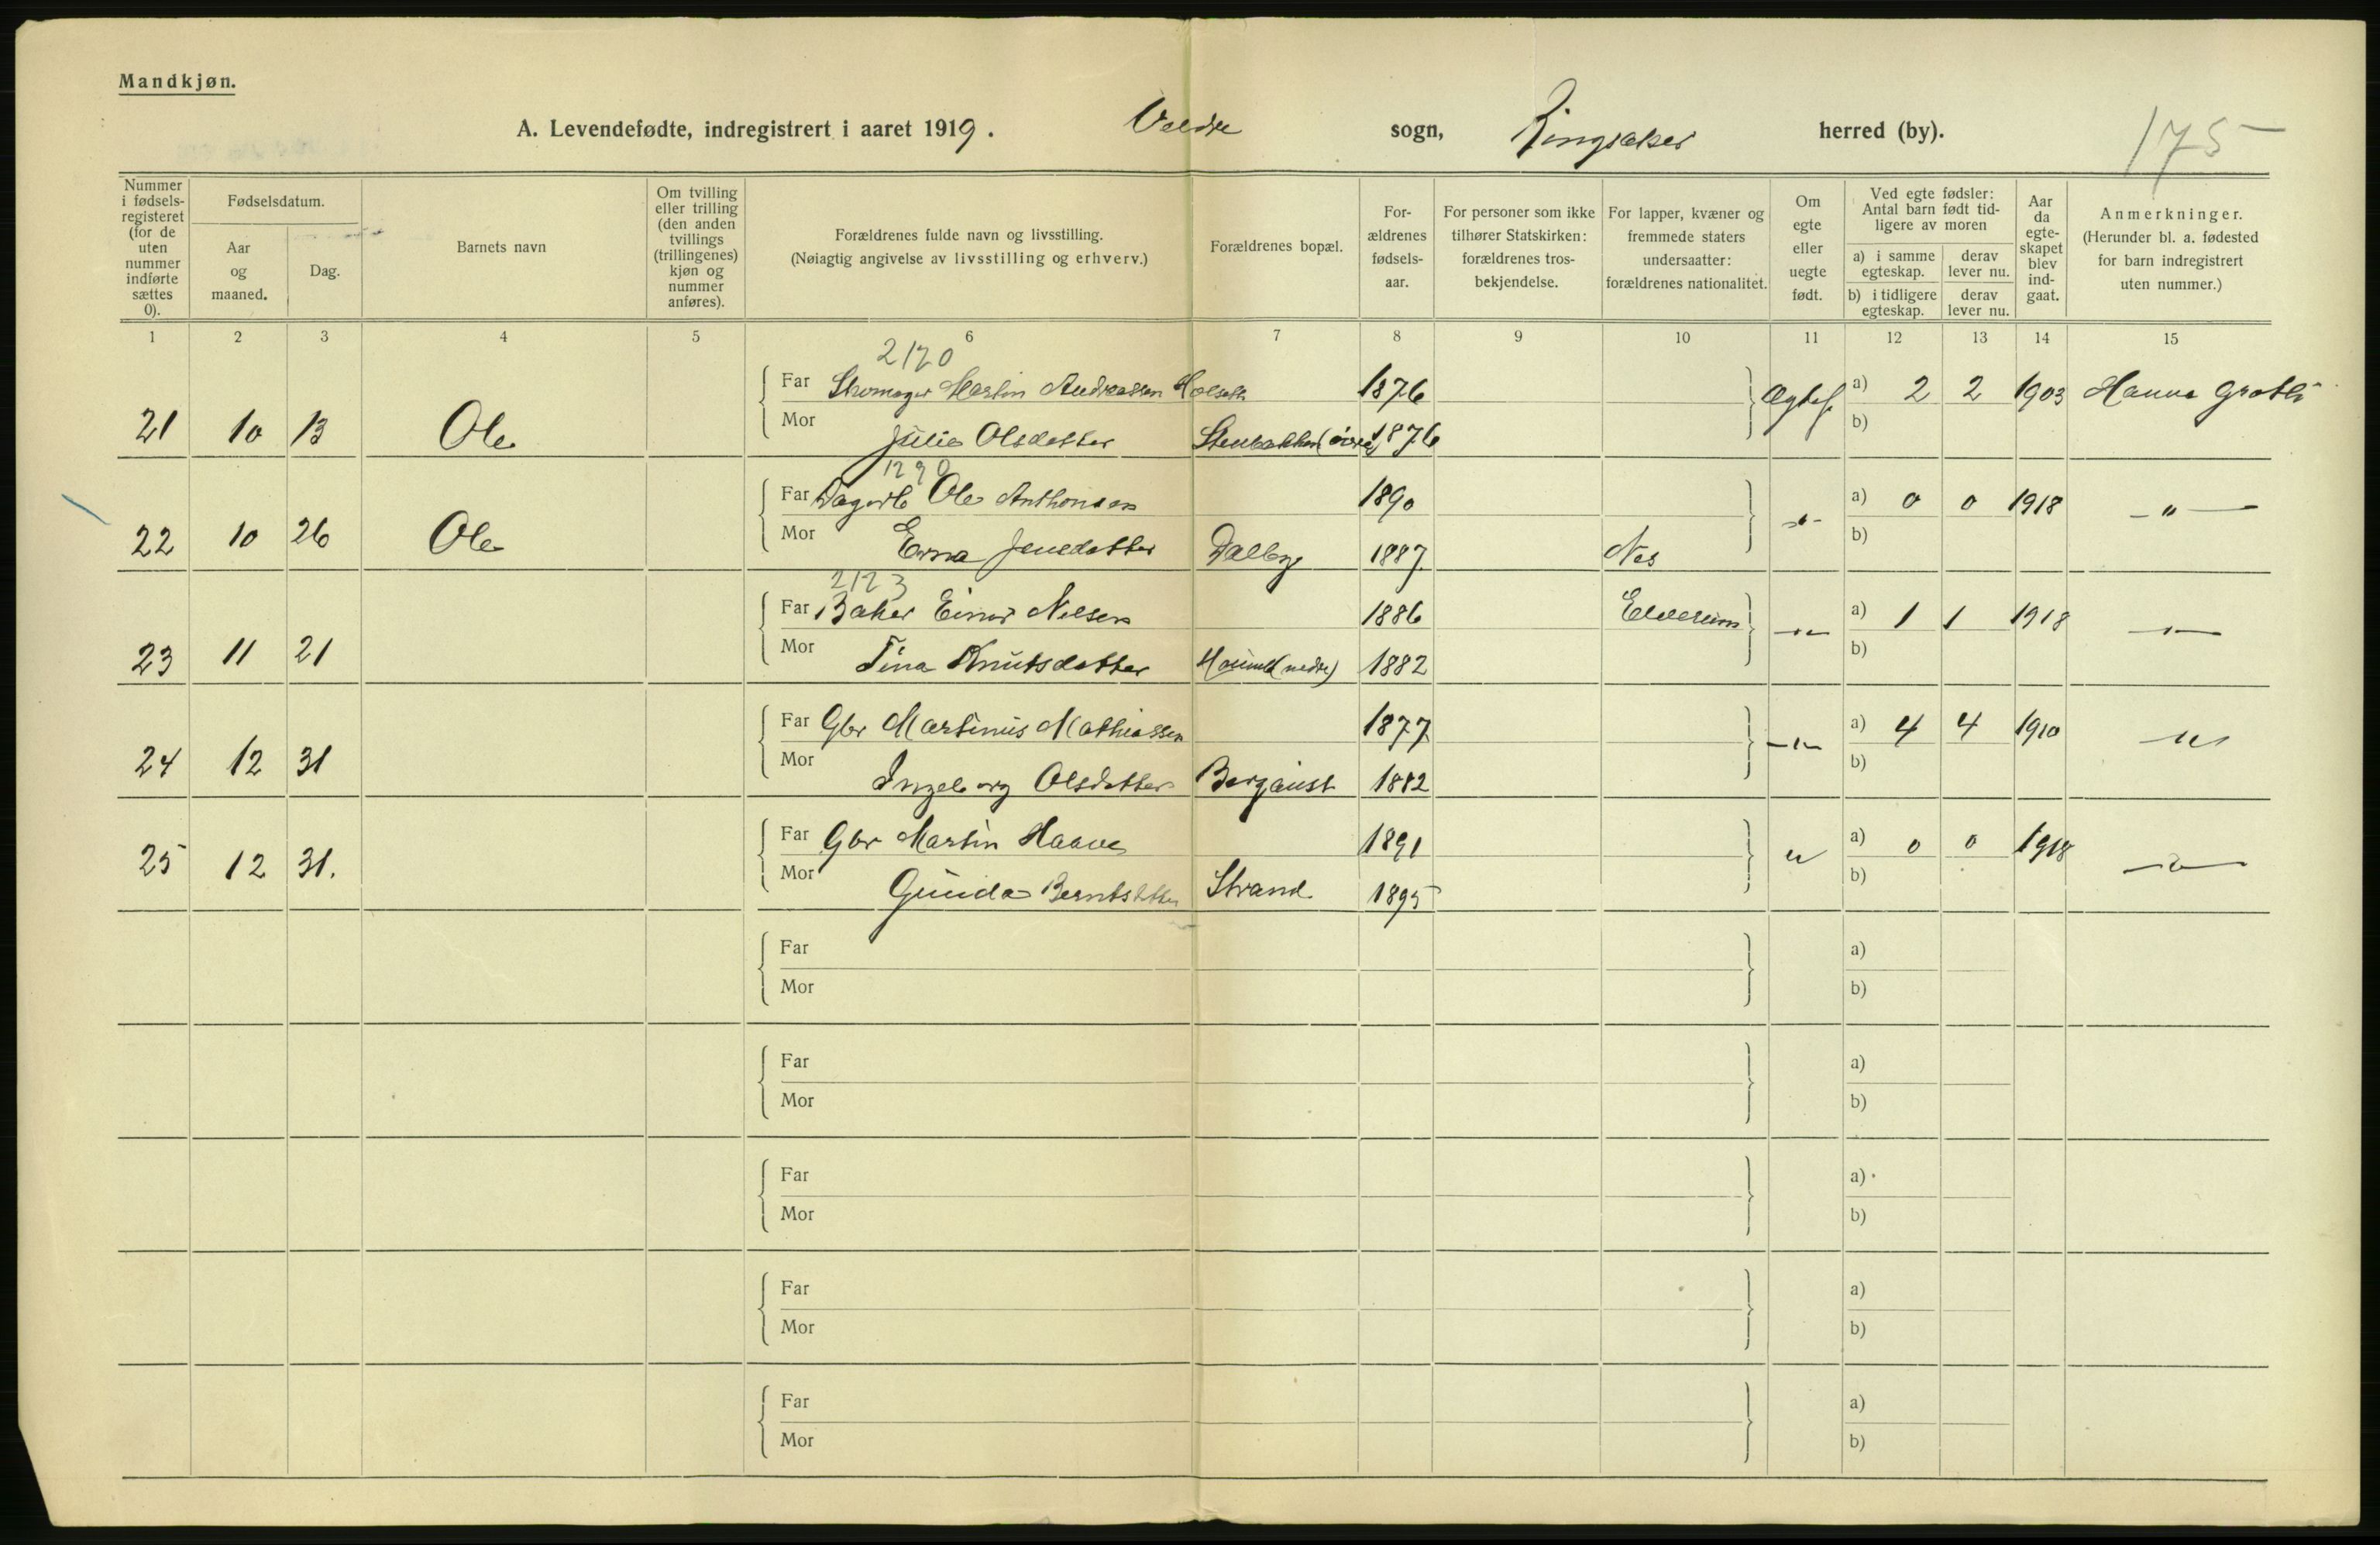 Mandkjøn.
A. Levendefødte, indregistrert i aaret 1919. Veldre sogn, Ringsaker herred (by). 175
Nummer i fødsels-registeret (for de uten nummer indførte sættes 0).
Fødselsdatum.
Aar og maaned.
Dag.
Barnets navn
Om tvilling eller trilling (den anden tvillings (trillingenes) kjøn og nummer anføres).
Forældrenes fulde navn og livsstilling.
(Nøiagtig angivelse av livsstilling og erhverv.)
Forældrenes bopæl.
For-ældrenes fødsels-aar.
For personer som ikke tilhører Statskirken: forældrenes tros-bekjendelse.
For lapper, kvæner og fremmede staters undersaatter: forældrenes nationalitet.
Om egte eller uegte født.
Ved egte fødsler: Antal barn født tid-ligere av moren
a) i samme egteskap.
derav lever nu.
b) i tidligere egteskap.
derav lever nu.
Aar da egte-skapet blev ind-gaat.
Anmerkninger.
(Herunder bl. a. fødested for barn indregistrert uten nummer.)
1 2 3 4 5 6 7 8 9 10 11 12 13 14 15
2120
Far Skomager Martin Andreassen Holseth 1876 Ægtef. a) 2 2 1903 Hanna Grøtli
21 10 13 Ole Mor Julie Olsdatter Stenbakken (øvre) 1876 b)
1290
Far Dagarb Ole Anthonsen 1890 a) 0 0 1918 — " —
22 10 26 Ole Mor Erna Jensdatter Dalby 1887 Nes - " - b)
2123
Far Baker Einar Nilsen 1886 Elverum a) 1 1 1918 — " —
23 11 21 Mor Tina Knutsdatter (nedre) 1882 — " — b)
Far Gbr Martinus Mathiassen 1877 a) 4 4 1910 — " —
24 12 31 Mor Ingeborg Olsdatter Bergaust 1882 — " — b)
Far Gbr Martin Haave 1891 " a) 0 0 1918 — " —
25 12 31. Mor Gunda Berntsdatter Strand 1895 b)
Far a)
Mor b)
Far a)
Mor b)
Far a)
Mor b)
Far a)
Mor b)
Far a)
Mor b)